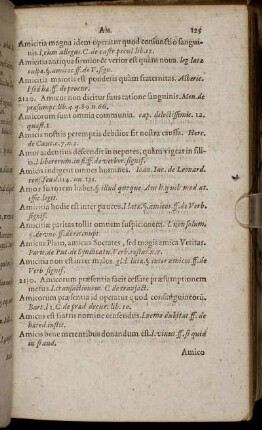 AM. 125
Amicitia magna idem operatur quod consunctio sangui-
nis. l. cum allegas. C. de castr. pecul. lib. 12.
Amicitia antiqua firmior & verior est quàm noua. leg. lata
culpa. §. amicos. ff. de V. sign.
Amicitia maioris est ponderis quàm fraternitas. Alberic.
ff. de procur.
2120. Amicus non dicitur suus ratione sanguinis. Men. de
præsumpt. lib. 4. q. 89. nu. 22.
Amicorum sunt omnia communia. cap. dilectissimis. 12.
quæst. 1.
Amicis nostris peremptis debilior fit nostra caussa.
de Caut. c. 7. n. 1.
Amor ardentius descendit in nepotes, quàm vigeat in fili-
is. l. liberorum. in fi. ff. de verbor. signif.
Amicis indigent omnes homines. Ioan. Iac. de Leonard.
conf. feud. 114. nu. 131.
Amor suæ torem iubet.
effic. legit.
Amicitia hodie est inter pauces. l. lata. §. amicos. ff. de Verb.
signif.
Amicitiæ paritas tollit omnem suspicionem.
Amicus Plato, amicus Socrates, sed magis amica Veritas.
Parif. de Put. de Syndicatu.
Amicitia non est inter malos. gl. l. lata. §. inter amicos. ff. de
Verb signif.
2130. Amicorum præsentia facit cessare præsumptionem
metus. l. transactionem. C. de transact.
Amicorum præsentia id operatur quod consanguineorũ,
Bart. l. 1. C. de præd. decur. lib. 10.
Amicus est fratris nomine censendus. l. nemo dubitat ff. de
hæred. instit.
Amicis bene merentibus donandum est. l. vinius. ff. si quid
in fraud.
Amico